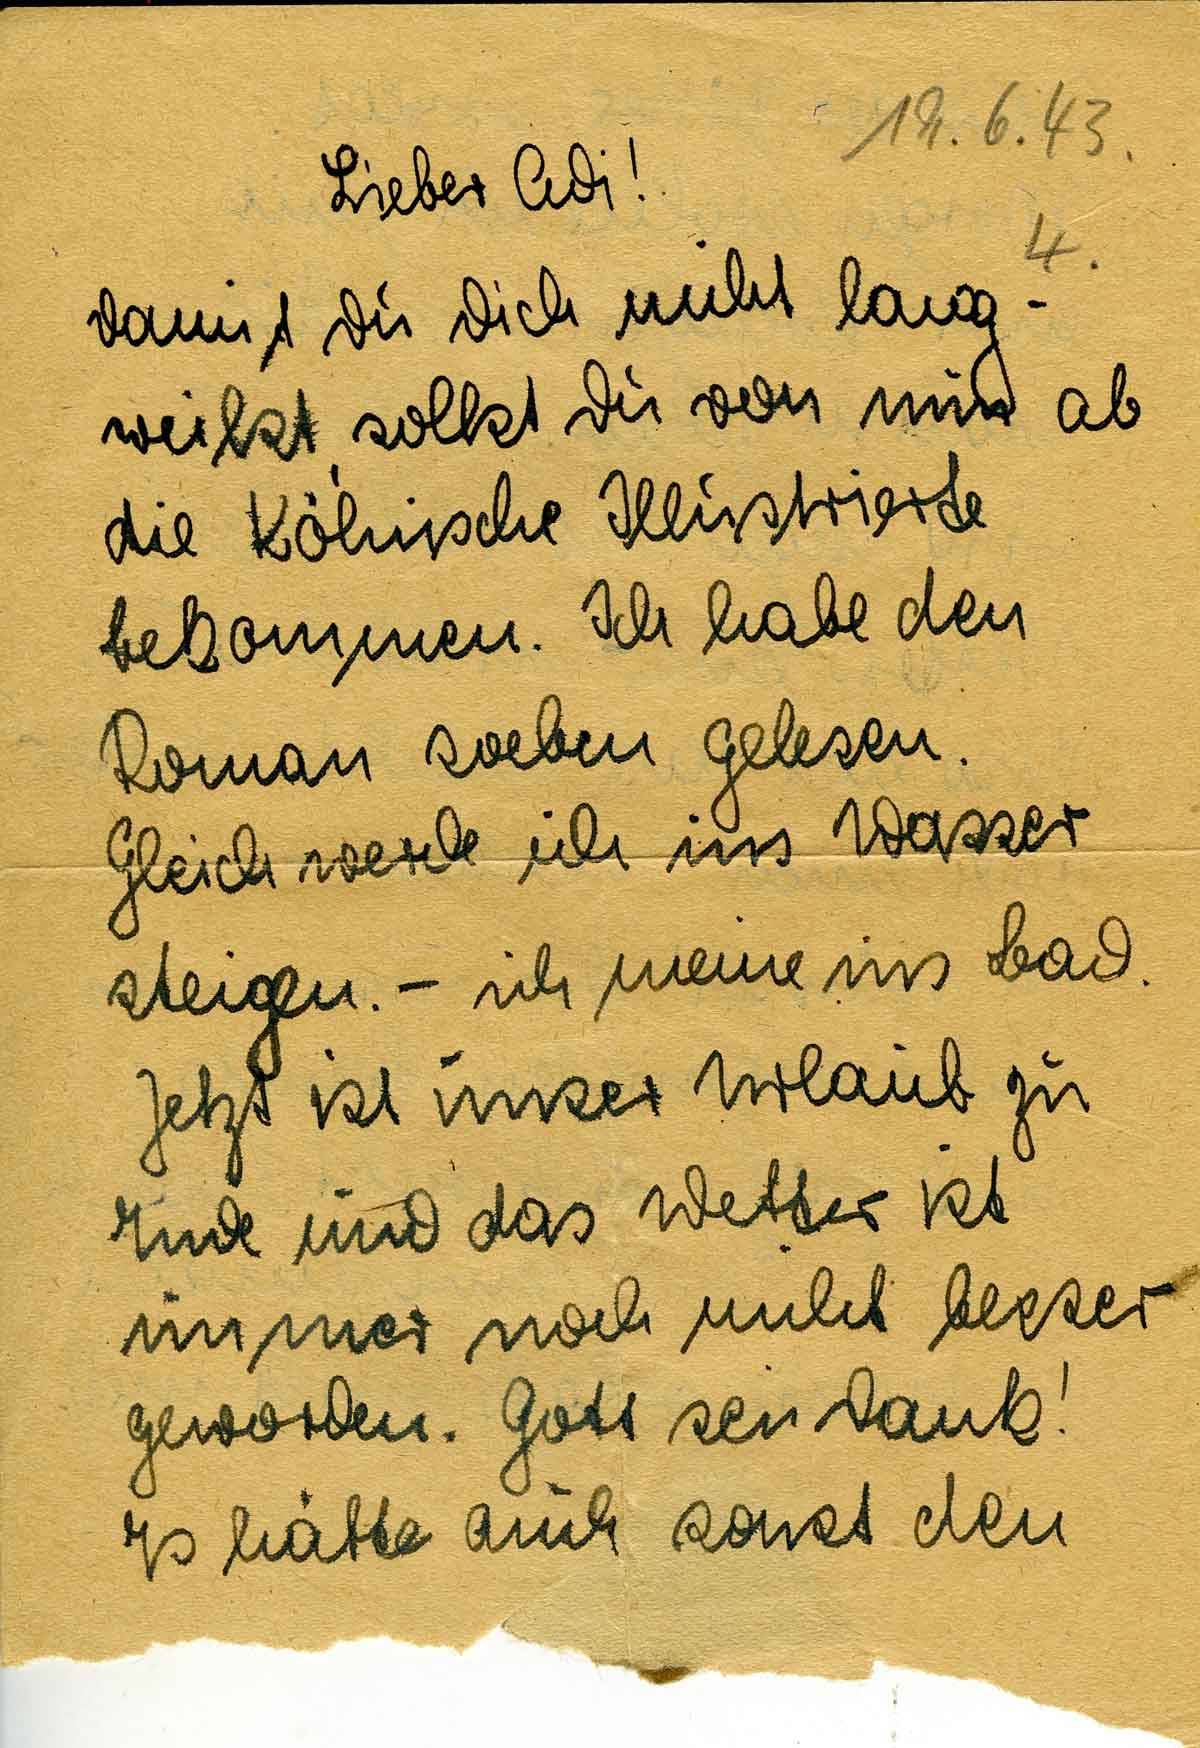 18.6.43.
Lieber Adi!
4.
damit Du Dich nicht lang-
weilst, sollst Du von nun ab
die Kölnische Illustrierte
bekommen. Ich habe den
Roman soeben gelesen.
Gleich werde ich ins Wasser
steigen. – ich meine ins Bad.
Jetzt ist unser Urlaub zu
Ende und das Wetter ist
immer noch nicht besser
geworden. Gott sei Dank!
Es hätte auch sonst den